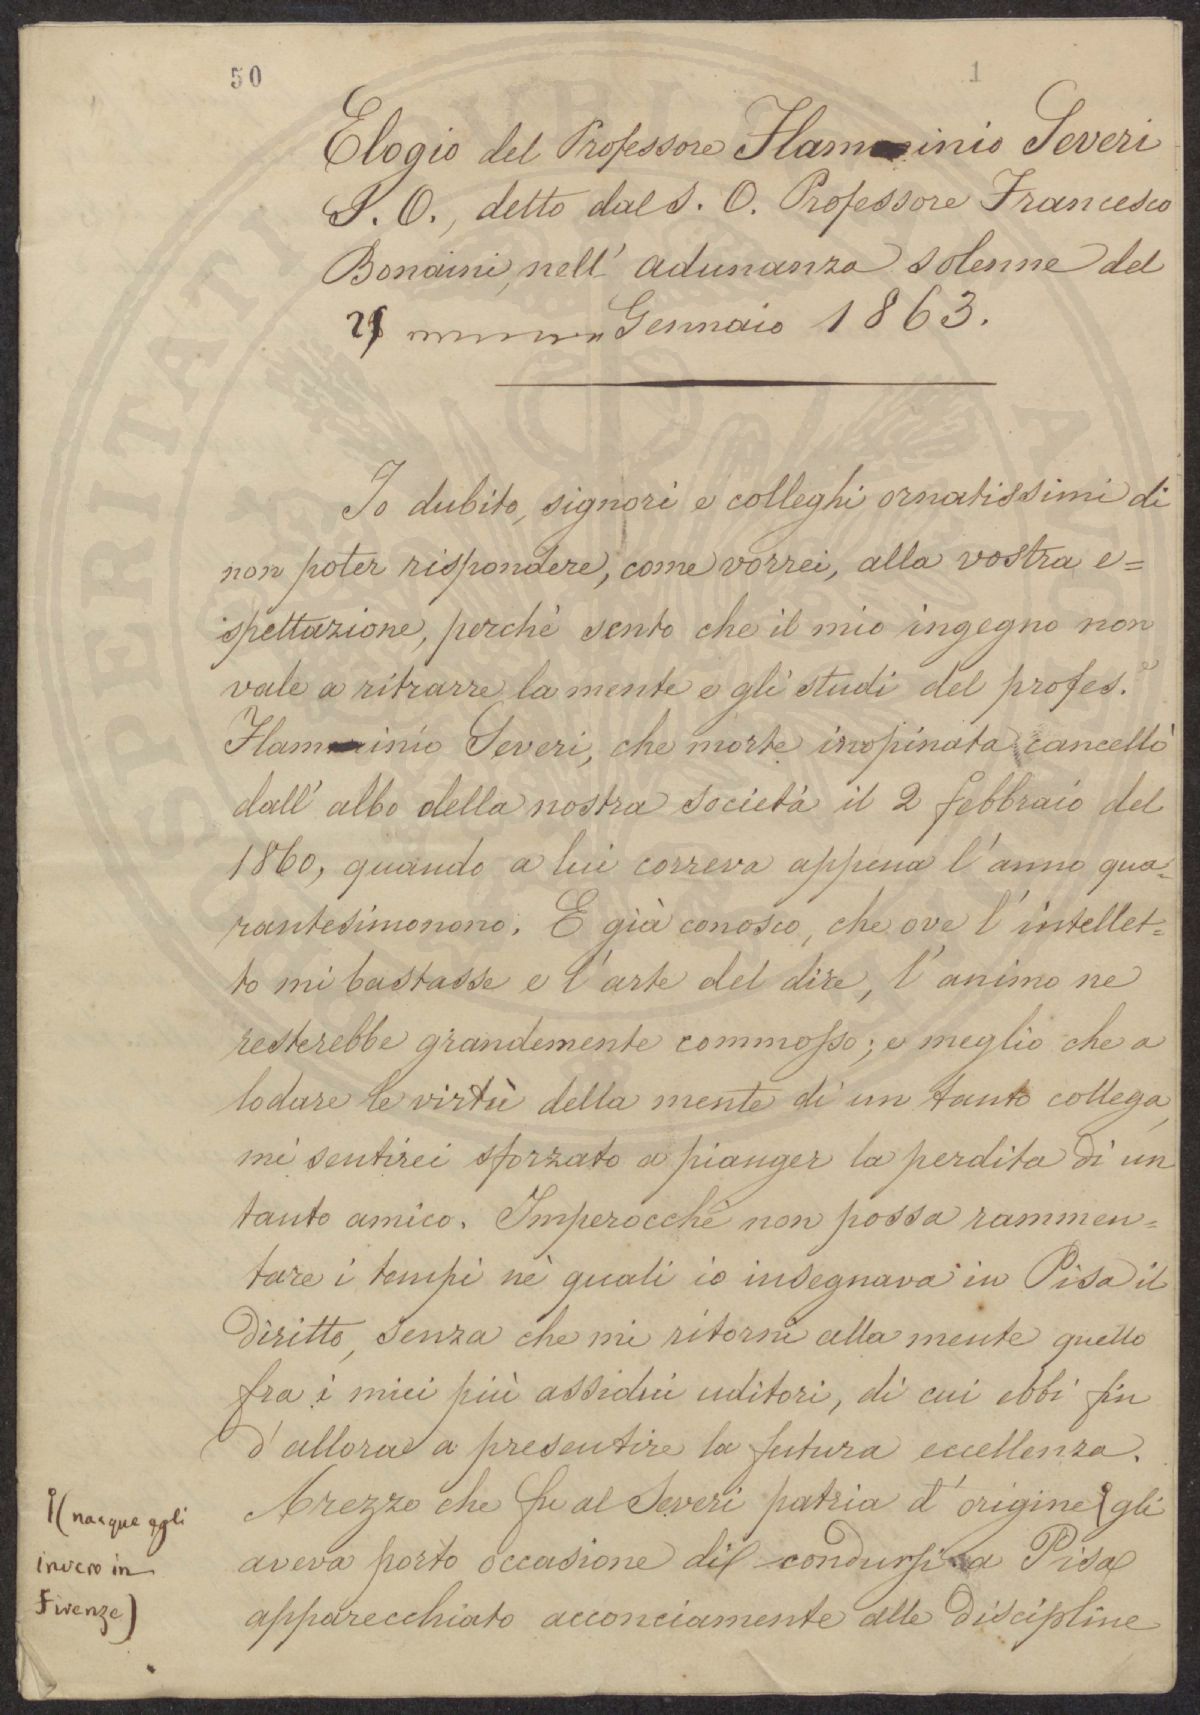 50
1
Elogio del Professore Flaminio Severi
S. O., detto dal S. O. Professore Francesco
Bonaini, nell' adunanza solenne del
Gennaio 1863.
Io dubito, signori e colleghi ornatissimi di
non poter rispondere, come vorrei, alla vostra e=
spettazione, perchè sento che il mio ingegno non
vale a ritrarre la mente e gli studi del profes.e
Flaminio Severi, che morte inopinata cancellò
dall' albo della nostra società il 2 febbraio del
1860, quando a lui correva appena l' anno qua=
rantesimonono. E già conosco, che ove l' intellet=
to mi bastasse e l' arte del dire, l' animo ne
resterebbe grandemente commosso; e meglio che a
lodare le virtù della mente di un tanto collega,
mi sentirei sforzato a pianger la perdita di un
tanto amico. Imperocchè non possa rammen=
tare i tempi nè quali io insegnava in Pisa il
Diritto, senza che mi ritorni alla mente quello
fra i miei più assidui uditori, di cui ebbi fin
d' allora a presentire la futura eccellenza.
Arezzo che fu al Severi patria d' origine gli
aveva porto occasione di condursi a Pisa
apparecchiato acconciamente alle discipline
(nacque egli
invero in
Firenze)
SPERITATI PUBLICAE AUGENDAE